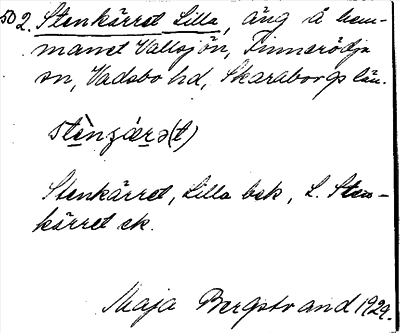 502. Stenkärret Lilla, äng å hem-
manet Vallsjön, Finnerödja
sn, Vadsbo hd, Skaraborgs län.
stènɟærə(t)
Stenkärret, Lilla bek, L. Sten-
kärret ek.
Maja Bergstrand 1929.